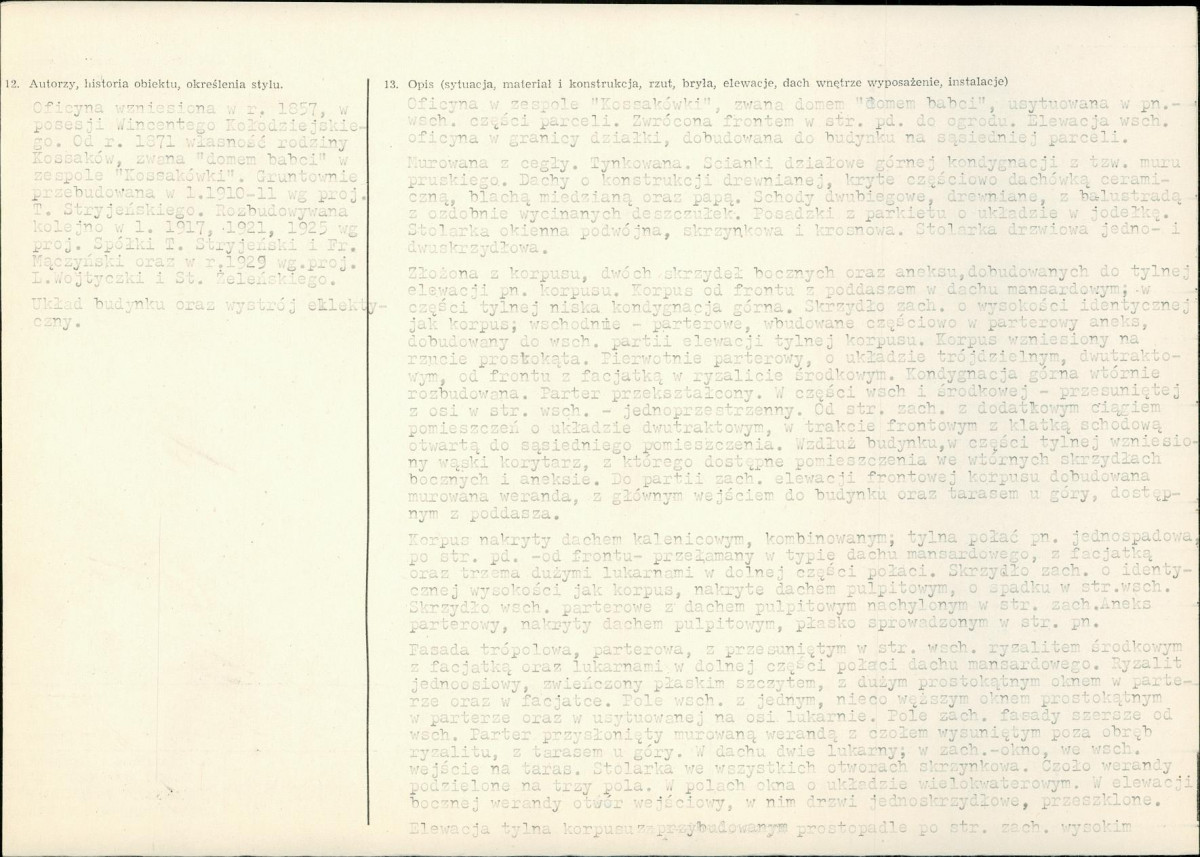 12. Autorzy, historia obiektu, określenia stylu.
Oficyna wzniesiona w r. 1857, w
posesji Wincentego Kołodziejskie-
go. Od r. 1871 własność rodziny
Kossaków, zwana "domem babci" w
zespole "Kossakówki". Gruntownie
przebudowana w l.1910-11 wg proj.
T. Stryjeńskiego. Rozbudowywana
kolejno w l. 1917, 1921, 1925 wg
proj. Spółki T. Stryjeński i Fr.
Mączyński oraz w r.1929 wg.proj.
L.Wojtyczki i St. Żeleńskiego.
Układ budynku oraz wystrój eklekty-
czny.
13. Opis (sytuacja, materiał i konstrukcja, rzut, bryła, elewacje, dach wnętrze wyposażenie, instalacje)
Oficyna w zespole "Kossakówki", zwana domem "domem babci", usytuowana w pn.-
wsch. części parceli. Zwrócona frontem w str. pd. do ogrodu. Elewacja wsch.
oficyna w granicy działki, dobudowana do budynku na sąsiedniej parceli.
Murowana z cegły. Tynkowana. Scianki działowe górnej kondygnacji z tzw. muru
pruskiego. Dachy o konstrukcji drewnianej, kryte częściowo dachówką cerami-
czną, blachą miedzianą oraz papą. Schody dwubiegowe, drewniane, z balustradą
z ozdobnie wycinanych deszczułek. Posadzki z parkietu o układzie w jodełkę.
Stolarka okienna podwójna, skrzynkowa i krosnowa. Stolarka drzwiowa jedno- i
dwuskrzydłowa.
Złożona z korpusu, dwóch skrzydeł bocznych oraz aneksu,dobudowanych do tylnej
elewacji pn. korpusu. Korpus od frontu z poddaszem w dachu mansardowym; w
części tylnej niska kondygnacja górna. Skrzydło zach. o wysokości identycznej
jak korpus; wschodnie - parterowe, wbudowane częściowo w parterowy aneks,
dobudowany do wsch. partii elewacji tylnej korpusu. Korpus wzniesiony na
rzucie prostokąta. Pierwotnie parterowy, o układzie trójdzielnym, dwutrakto-
wym, od frontu z facjatką w ryzalicie środkowym. Kondygnacja górna wtórnie
rozbudowana. Parter przekształcony. W części wsch i środkowej - przesuniętej
z osi w str. wsch. - jednoprzestrzenny. Od str. zach. z dodatkowym ciągiem
pomieszczeń o układzie dwutraktowym, w trakcie frontowym z klatką schodową
otwartą do sąsiedniego pomieszczenia. Wzdłuż budynku,w części tylnej wzniesio-
ny wąski korytarz, z którego dostępne pomieszczenia we wtórnych skrzydłach
bocznych i aneksie. Do partii zach. elewacji frontowej korpusu dobudowana
murowana weranda, z głównym wejściem do budynku oraz tarasem u góry, dostęp-
nym z poddasza.
Korpus nakryty dachem kalenicowym, kombinowanym; tylna połać pn. jednospadowa,
po str. pd. -od frontu- przełamany w typie dachu mansardowego, z facjatką
oraz trzema dużymi lukarnami w dolnej części połaci. Skrzydło zach. o identy-
cznej wysokości jak korpus, nakryte dachem pulpitowym, o spadku w str.wsch.
Skrzydło wsch. parterowe z dachem pulpitowym nachylonym w str. zach.Aneks
parterowy, nakryty dachem pulpitowym, płasko sprowadzonym w str. pn.
Fasada trópolowa, parterowa, z przesuniętym w str. wsch. ryzalitem środkowym
z facjatką oraz lukarnami w dolnej części połaci dachu mansardowego. Ryzalit
jednoosiowy, zwieńczony płaskim szczytem, z dużym prostokątnym oknem w parte-
rze oraz w facjatce. Pole wsch. z jednym, nieco węższym oknem prostokątnym
w parterze oraz w usytuowanej na osi lukarnie. Pole zach. fasady szersze od
wsch. Parter przysłonięty murowaną werandą z czołem wysuniętym poza obręb
ryzalitu, z tarasem u góry. W dachu dwie lukarny; w zach.-okno, we wsch.
wejście na taras. Stolarka we wszystkich otworach skrzynkowa. Czoło werandy
podzielone na trzy pola. W polach okna o układzie wielokwaterowym. W elewacji
bocznej werandy otwór wejściowy, w nim drzwi jednoskrzydłowe, przeszklone.
Elewacja tylna korpusu z przybudowanym prostopadle po str. zach. wysokim